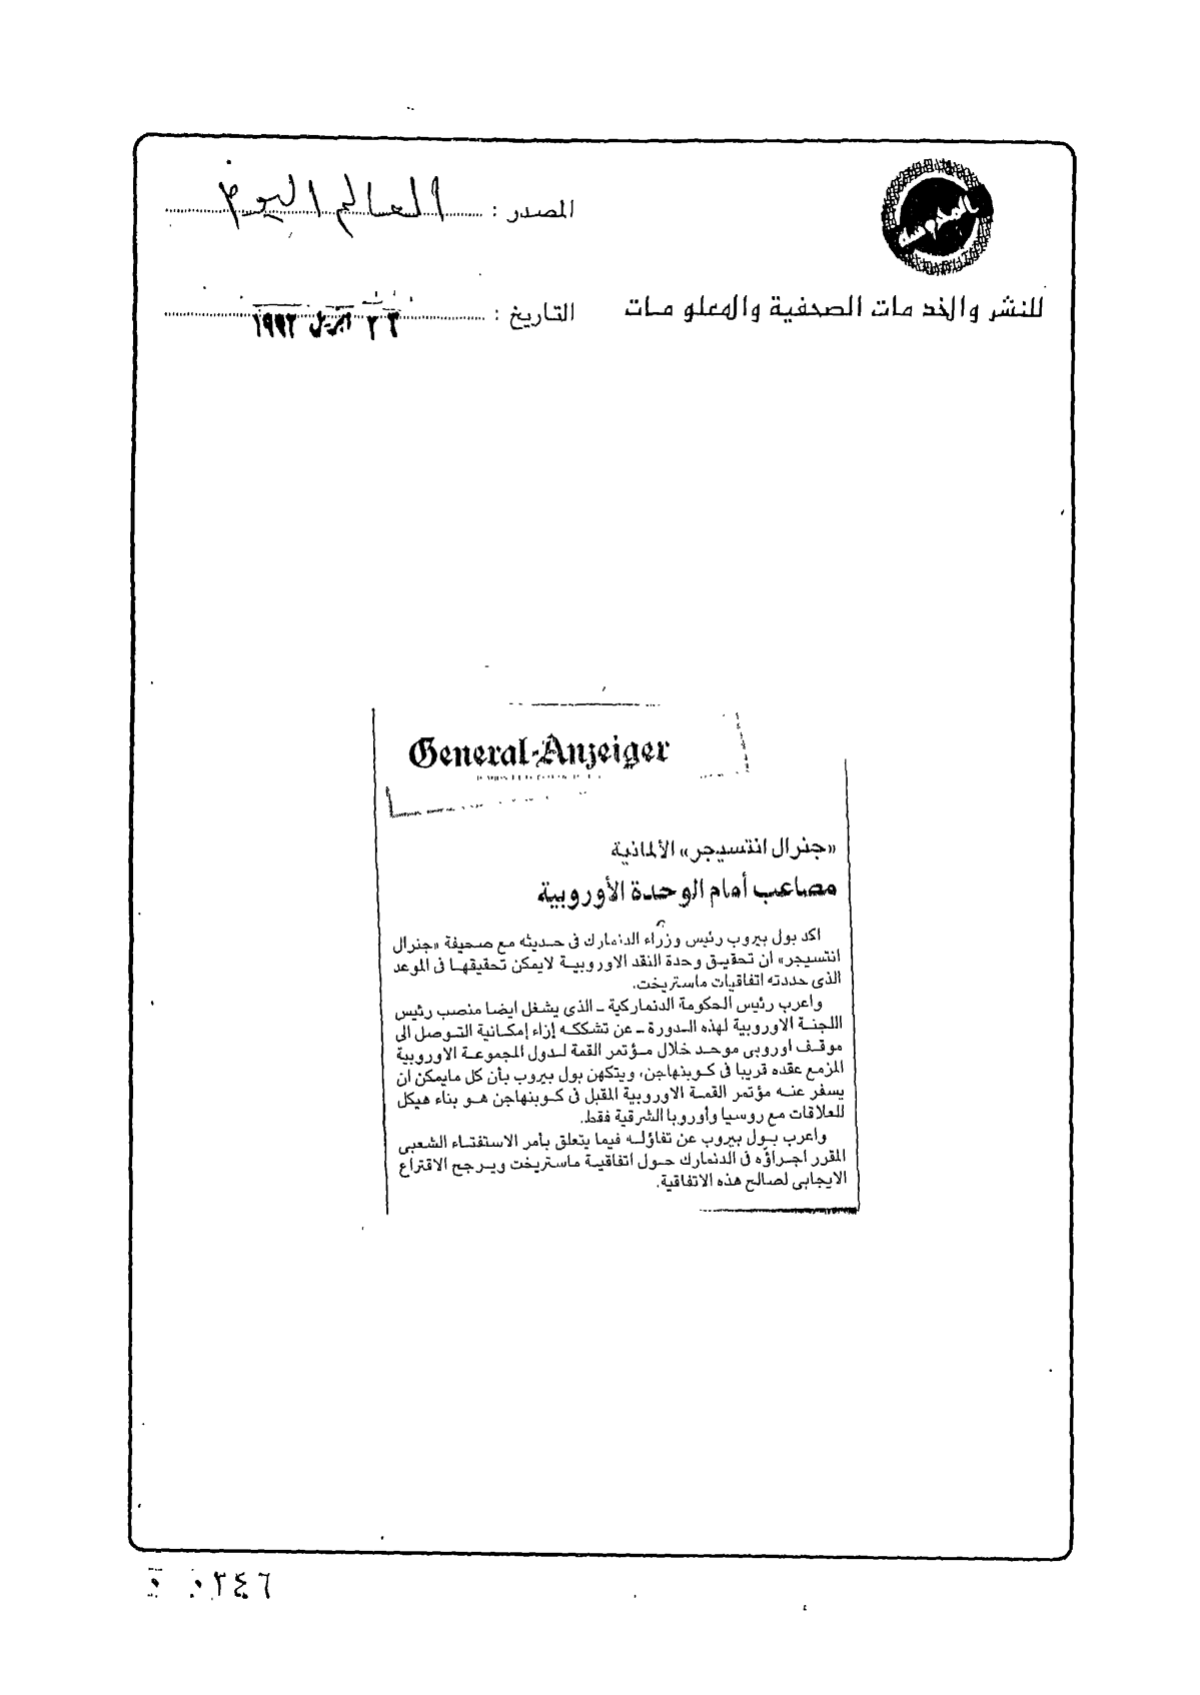 المصدر : العالم اليوم
للنشر والخدمات الصحفية والمعلومات
التاريخ : ابريل
General-Anzeiger
«جنرال انتسيجر» الألمانية
مصاعب أمام الوحدة الأوروبية
اكد بول بيروب رئيس وزراء الدنمارك فى حديثه مع صحيفة «جنرال
انتسيجر» ان تحقيق وحدة النقد الاوروبية لايمكن تحقيقها فى الموعد
الذى حددته اتفاقيات ماستريخت.
واعرب رئيس الحكومة الدنماركية ـ الذى يشغل ايضا منصب رئيس
اللجنة الاوروبية لهذه الدورة ـ عن تشككه إزاء إمكانية التوصل الى
موقف اوروبى موحد خلال مؤتمر القمة لدول المجموعة الاوروبية
المزمع عقده قريبا فى كوبنهاجن، ويتكهن بول بيروب بأن كل مايمكن ان
يسفر عنه مؤتمر القمة الاوروبية المقبل فى كوبنهاجن هو بناء هيكل
للعلاقات مع روسيا وأوروبا الشرقية فقط.
واعرب بول بيروب عن تفاؤله فيما يتعلق بأمر الاستفتاء الشعبى
المقرر اجراؤه فى الدنمارك حول اتفاقية ماستريخت ويرجح الاقتراع
الايجابى لصالح هذه الاتفاقية.